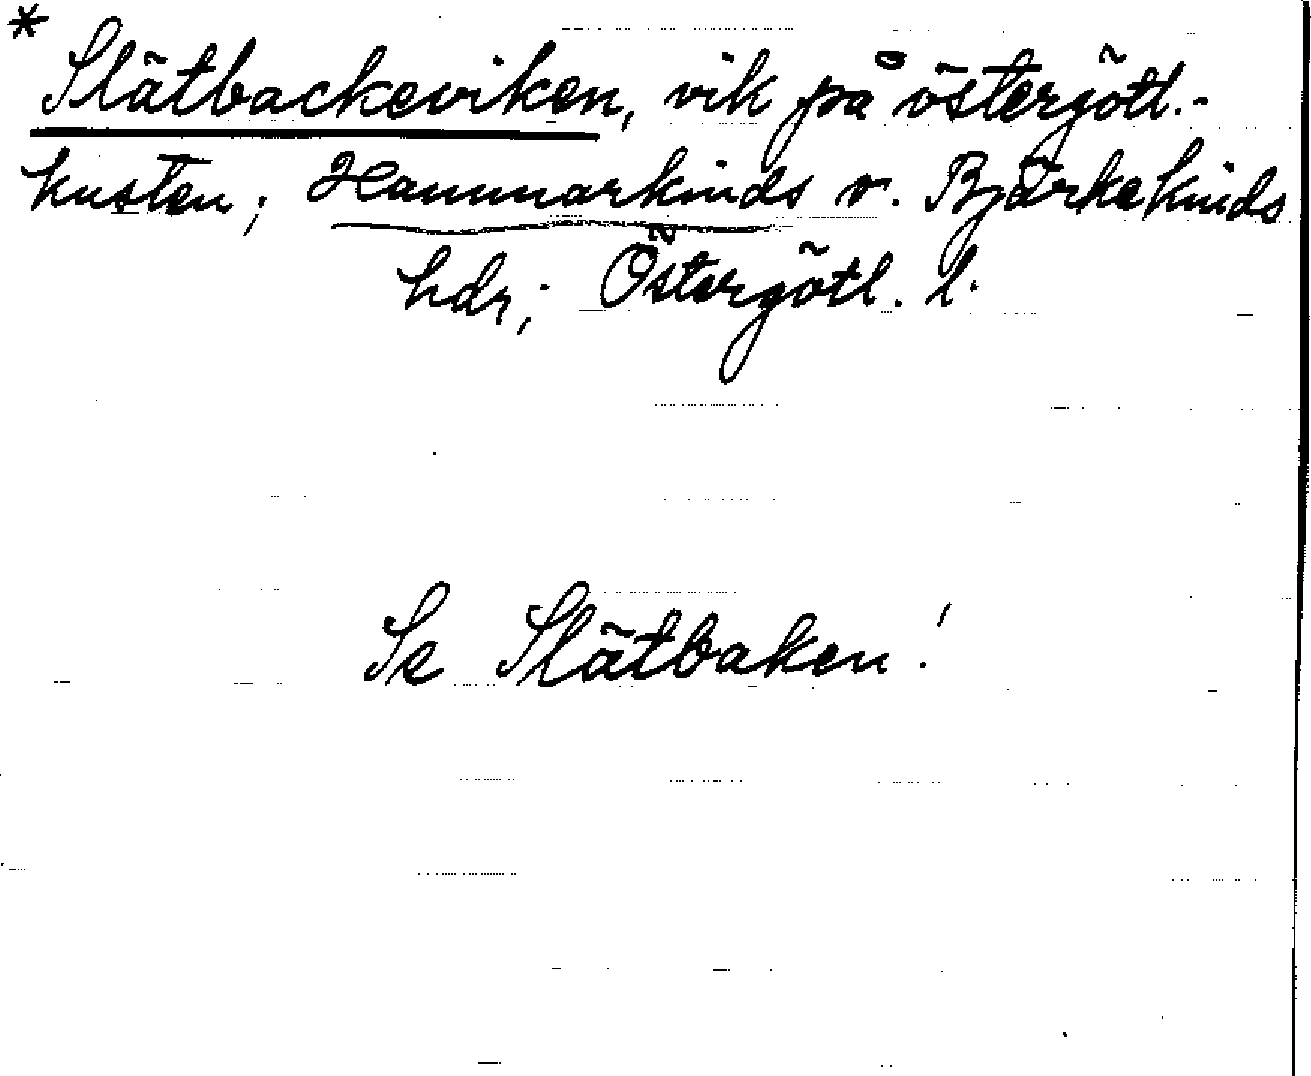 * Slätbackeviken, vik på östergötl.-
kusten; Hammarkinds o. Björkekinds
hdr; Östergötl. l.
Se Slätbaken!